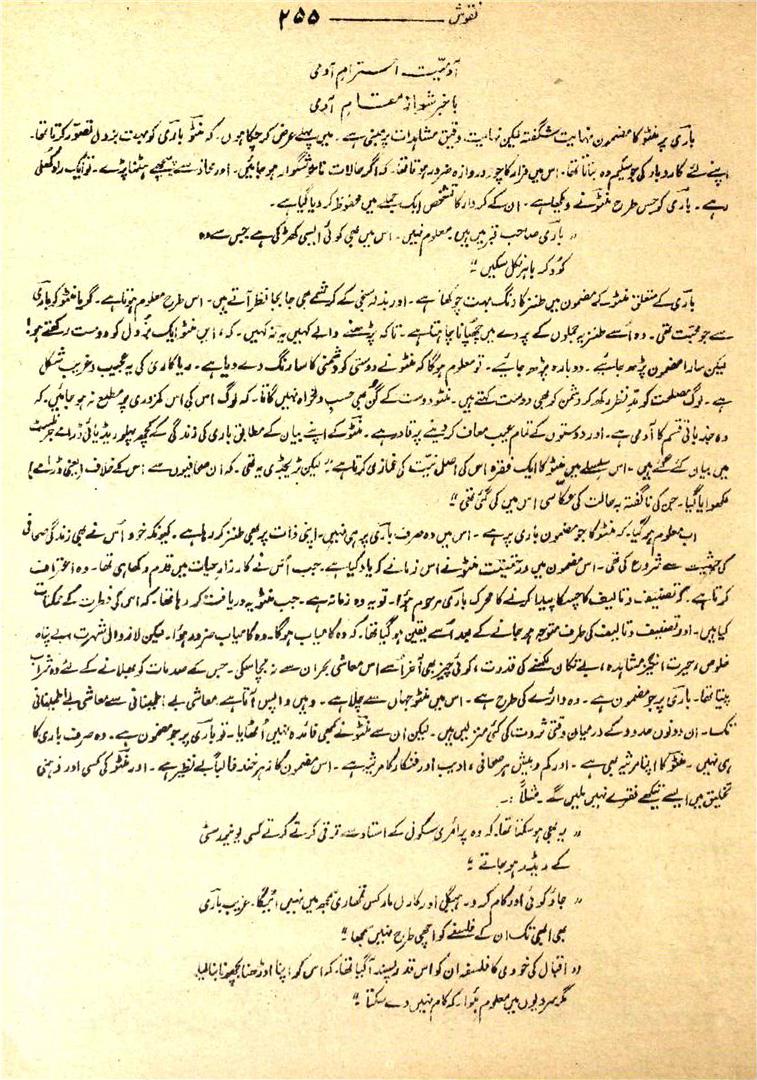 نقوش ــــــــــــ ۲۵۵
آدمیّت احترامِ آدمی
باخبر شو از مقامِ آدمی
باری پر منٹو کا مضمون نہایت شگفتہ لیکن نہایت دقیق مشاہدات پر مبنی ہے ۔ میں پہلے عرض کر چکا ہوں ۔ کہ منٹو باری کو بہت بزدل تصوّر کرتا تھا۔
اپنے لئے کاروبار کی جو سکیم وہ بناتا تھا۔ اس میں فرار کا چور دروازہ ضرور ہوتا تھا۔ کہ اگر حالات ناخوشگوار ہو جائیں۔ اور محاذ سے پیچھے ہٹنا پڑے۔ تو ایک راہ کھلی
رہے۔ باری کو جس طرح منٹو نے دیکھا ہے۔ ان کے کردار کا تشخص ایک جملے میں محفوظ کر دیا گیا ہے۔
" باری صاحب قبر میں ہیں۔ معلوم نہیں۔ اس میں بھی کوئی ایسی کھڑکی ہے جس سے وہ
کود کر باہر نکل سکیں "
باری کے متعلق منٹو کے مضمون میں طنز کا رنگ بہت چوکھا ہے ۔ اور بذلہ سنجی کے کرشمے بھی جا بجا نظر آتے ہیں۔ اس طرح معلوم ہوتا ہے۔ گویا منٹو کو باری
سے جو محبت تھی۔ وہ اُسے طنزیہ جملوں کے پردے میں چھپانا چاہتا ہے۔ تاکہ پڑھنے والے کہیں یہ نہ کہیں۔ کہ، ایں! منٹو ایک بزدل کو دوست رکھتے ہو!
لیکن سارا مضمون پڑھ جائیے۔ دوبارہ پڑھ جائیے۔ تو معلوم ہوگا کہ منٹو نے دوستی کو دشمنی کا سا رنگ دے دیا ہے۔ ریاکاری کی یہ عجیب و غریب شکل
ہے۔ لوگ مصلحت کو مدِ نظر رکھ کر دشمن کو بھی دوست کہتے ہیں۔ منٹو دوست کے گُن بھی حسبِ دلخواہ نہیں گاتا۔ کہ لوگ اس کی اس کمزوری پر مطلع نہ ہو جائیں۔ کہ
وہ جذباتی قسم کا آدمی ہے۔ اور دوستوں کے تمام عیب معاف کر دینے پر قادر ہے۔ منٹو کے اپنے بیان کے مطابق باری کی زندگی کے کچھ پہلو ریڈیائی ڈرامے جرنلسٹ
میں بیان کئے گئے ہیں۔ اس سلسلے میں منٹو کا ایک فقرہ اس کی اصل نیّت کی غمازی کرتا ہے " لیکن ٹریجڈی یہ تھی۔ کہ ان صحافیوں سے اس کے خلاف (یعنی ڈرامے)
لکھوایا گیا۔ جن کی ناگفتہ بہ حالت کی عکّاسی اس میں کی گئی تھی "
اب معلوم ہو گیا۔ کہ منٹو کا جو مضمون باری پر ہے۔ اس میں وہ صرف باری پر ہی نہیں۔ اپنی ذات پر بھی طنز کر رہا ہے۔ کیونکہ خود اُس نے بھی زندگی صحافی
کی حیثیت سے شروع کی تھی۔ اس مضمون میں درحقیقت منٹو نے اس زمانے کو یاد کیا ہے۔ جب اُس نے کارزارِ حیات میں قدم رکھا ہی تھا۔ وہ اعتراف
کرتا ہے۔ کہ تصنیف و تالیف کا چسکا پیدا کرنے کا محرک باری مرحوم ہُوا۔ تو یہ وہ زمانہ ہے۔ جب منٹو یہ دریافت کر رہا تھا۔ کہ اس کی فطرت کے ممکنات
کیا ہیں۔ اور تصنیف و تالیف کی طرف متوجہ ہو جانے کے بعد اُسے یقین ہو گیا تھا۔ کہ وہ کامیاب ہوگا۔ وہ کامیاب ضرور ہُوا۔ لیکن لازوال شہرت، بے پناہ
خلوص، حیرت انگیز مشاہدہ، بے تکان لکھنے کی قدرت، کوئی چیز بھی آخر اُسے اس معاشی بحران سے نہ بچا سکی۔ جس کے صدمات کو بھلانے کے لئے وہ شراب
پیتا تھا۔ باری پر جو مضمون ہے۔ وہ دائرے کی طرح ہے۔ اس میں منٹو جہاں سے چلا ہے۔ وہیں واپس آتا ہے۔ معاشی بے اطمینانی سے معاشی بے اطمینانی
تک۔ ان دونوں حدود کے درمیان وقتی ثروت کی کئی منزلیں ہیں۔ لیکن اُن سے منٹو نے کبھی فائدہ نہیں اُٹھایا۔ تو باری پر جو مضمون ہے۔ وہ صرف باری کا
ہی نہیں۔ منٹو کا اپنا مرثیہ بھی ہے۔ اور کم و بیش ہر صحافی، ادیب اور فنکار کا مرثیہ ہے۔ اس مضمون کا زہر خند غالباً بے نظیر ہے۔ اور منٹو کی کسی اور ذہنی
تخلیق میں ایسے تیکھے فقرے نہیں ملیں گے۔ مثلاً :۔
" یہ بھی ہو سکتا تھا۔ کہ وہ پرائمری سکول کے استاد سے ترقی کرتے کرتے کسی یونیورسٹی
کے ریڈر ہو جاتے "
" جاؤ کوئی اور کام کرو۔ ہیگل اور کارل مارکس تمہاری سمجھ میں نہیں آئیگا۔ غریب باری
بھی ابھی تک ان کے فلسفے کو اچھی طرح نہیں سمجھا "
" اقبال کی خودی کا فلسفہ ان کو اس قدر پسند آگیا تھا۔ کہ اس کو اپنا اوڑھنا بچھونا بنا لیا۔
مگر سردیوں میں معلوم ہُوا۔ کہ کام نہیں دے سکتا "